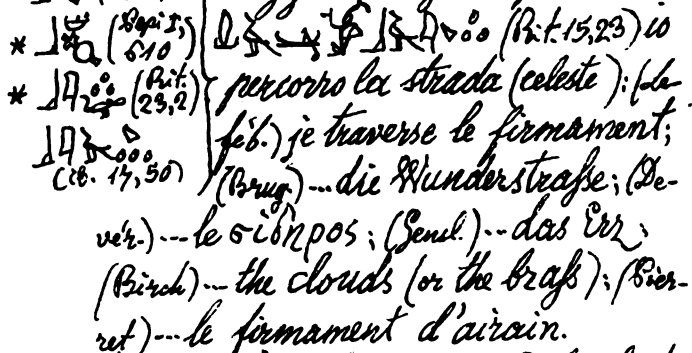 * (Sepi I, 610)
* (Rit. 23,2)
(ib. 17,50)
(Rit. 15,23) io
percorro la strada (celeste): (Le-
féb.) je traverse le firmament;
(Brug.)... die Wunderstraſse; (De-
vér.)... le σίδηρος; (Send.)... das Erz;
(Birch)... the clouds (or the braſs); (Pier-
ret)... le firmament d'airain.